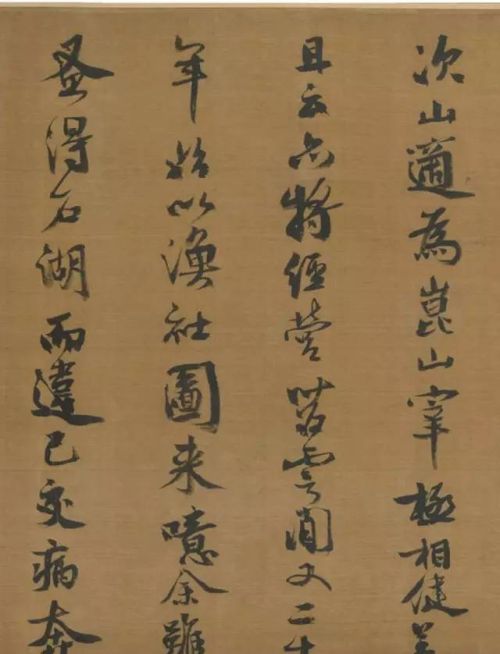 次山適為崑山宰極相健
且云亦將經營苕霅間又二十
年始以漁社圖来噫余雖
蚤得石湖而違己交病奔